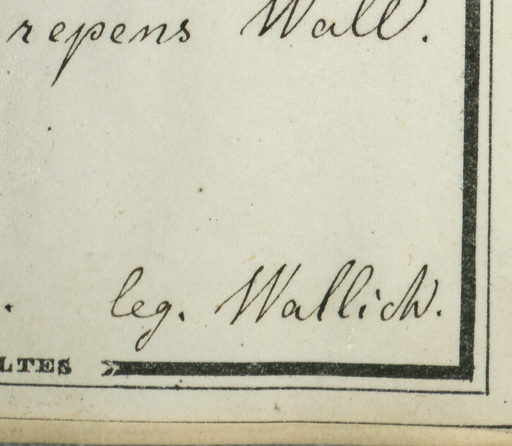 repens Wall.
. leg. Wallich.
LTES